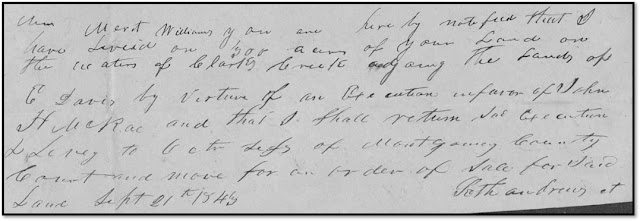 Mr Merit Williams you are hereby notefied that I
have Levied on 500 acres of your Land on
the waters of Clarks Creek ajoing the Lands of
E Davis by Virtue of an Execution in favor of John
H McRae and that I shall return Said Execution
& Levey to Octr Sess of Montgomery County
Court and move for an order of Sale for Said
Land Sept 21th 1843
Seth Andrews